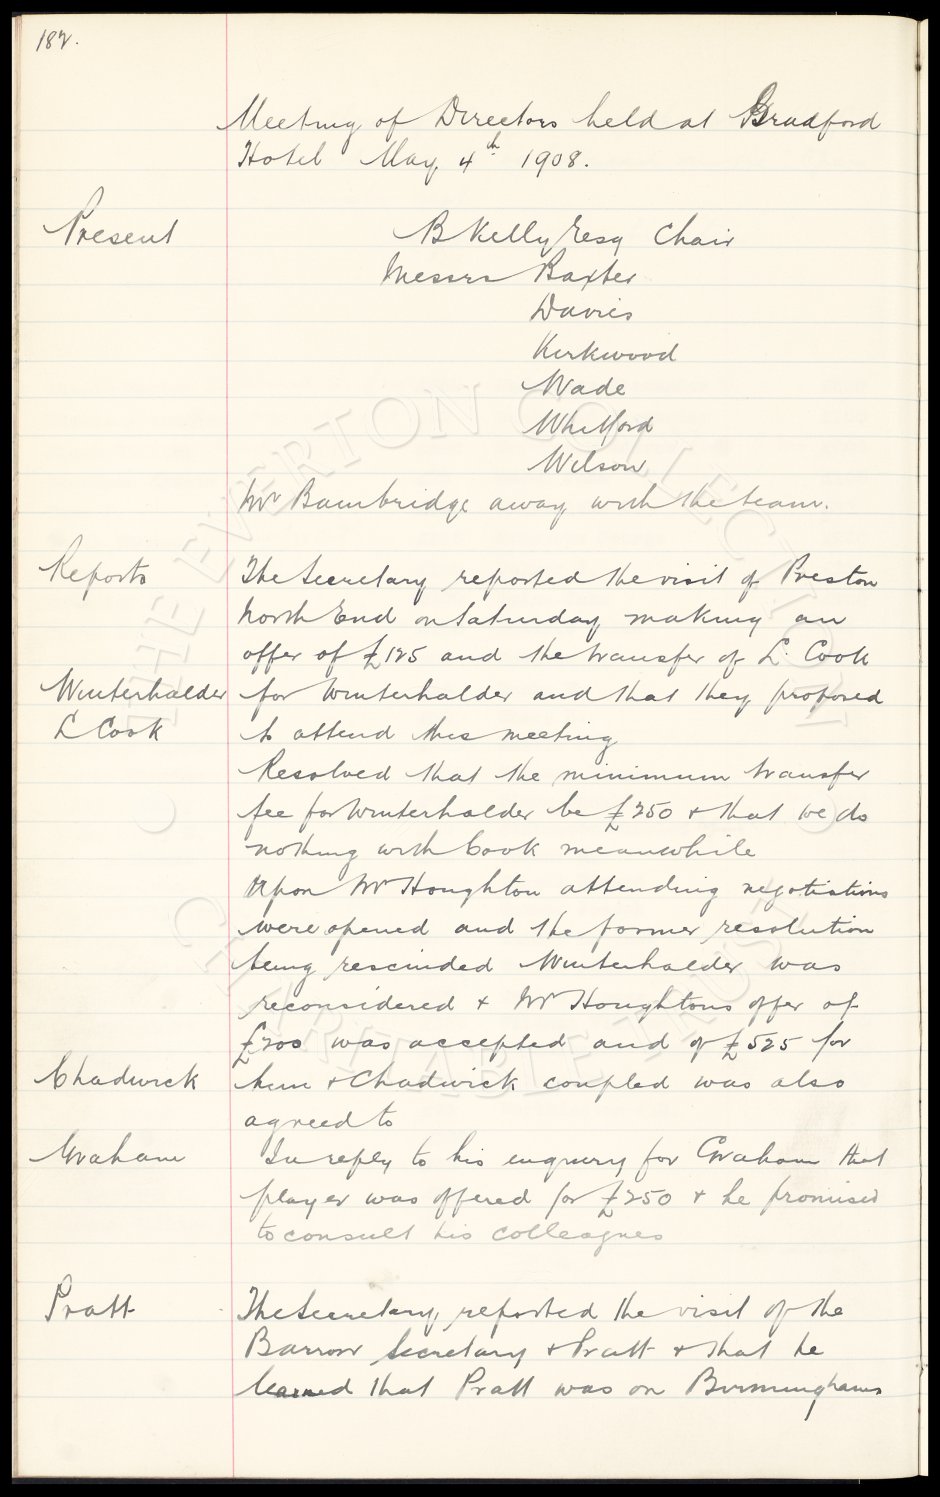 182.
Meeting of Directors held at Bradford
Hotel May 4th 1908.
Present
B Kelly Esq Chair
Messrs Baxter
Davies
Kirkwood
Wade
Whitford
Wilson
Mr Bainbridge away with the team.
Reports
The Secretary reported the visit of Preston
North End on Saturday making an
offer of £125 and the transfer of L. Cook
Winterhalder
for Winterhalder and that they proposed
L Cook
to attend this meeting
Resolved that the minimum transfer
fee for Winterhalder be £250 & that we do
nothing with Cook meanwhile
Upon Mr Houghton attending negotiations
were opened and the former resolution
being rescinded Winterhalder was
reconsidered & Mr Houghtons offer of
£200 was accepted and of £525 for
Chadwick
him & Chadwick coupled was also
agreed to
Graham
In reply to his enquiry for Graham that
player was offered for £250 & he promised
to consult his colleagues
Pratt
The Secretary reported the visit of the
Barrow Secretary & Pratt & that he
learned that Pratt was on Birminghams
THE EVERTON COLLECTION
CHARITABLE TRUST